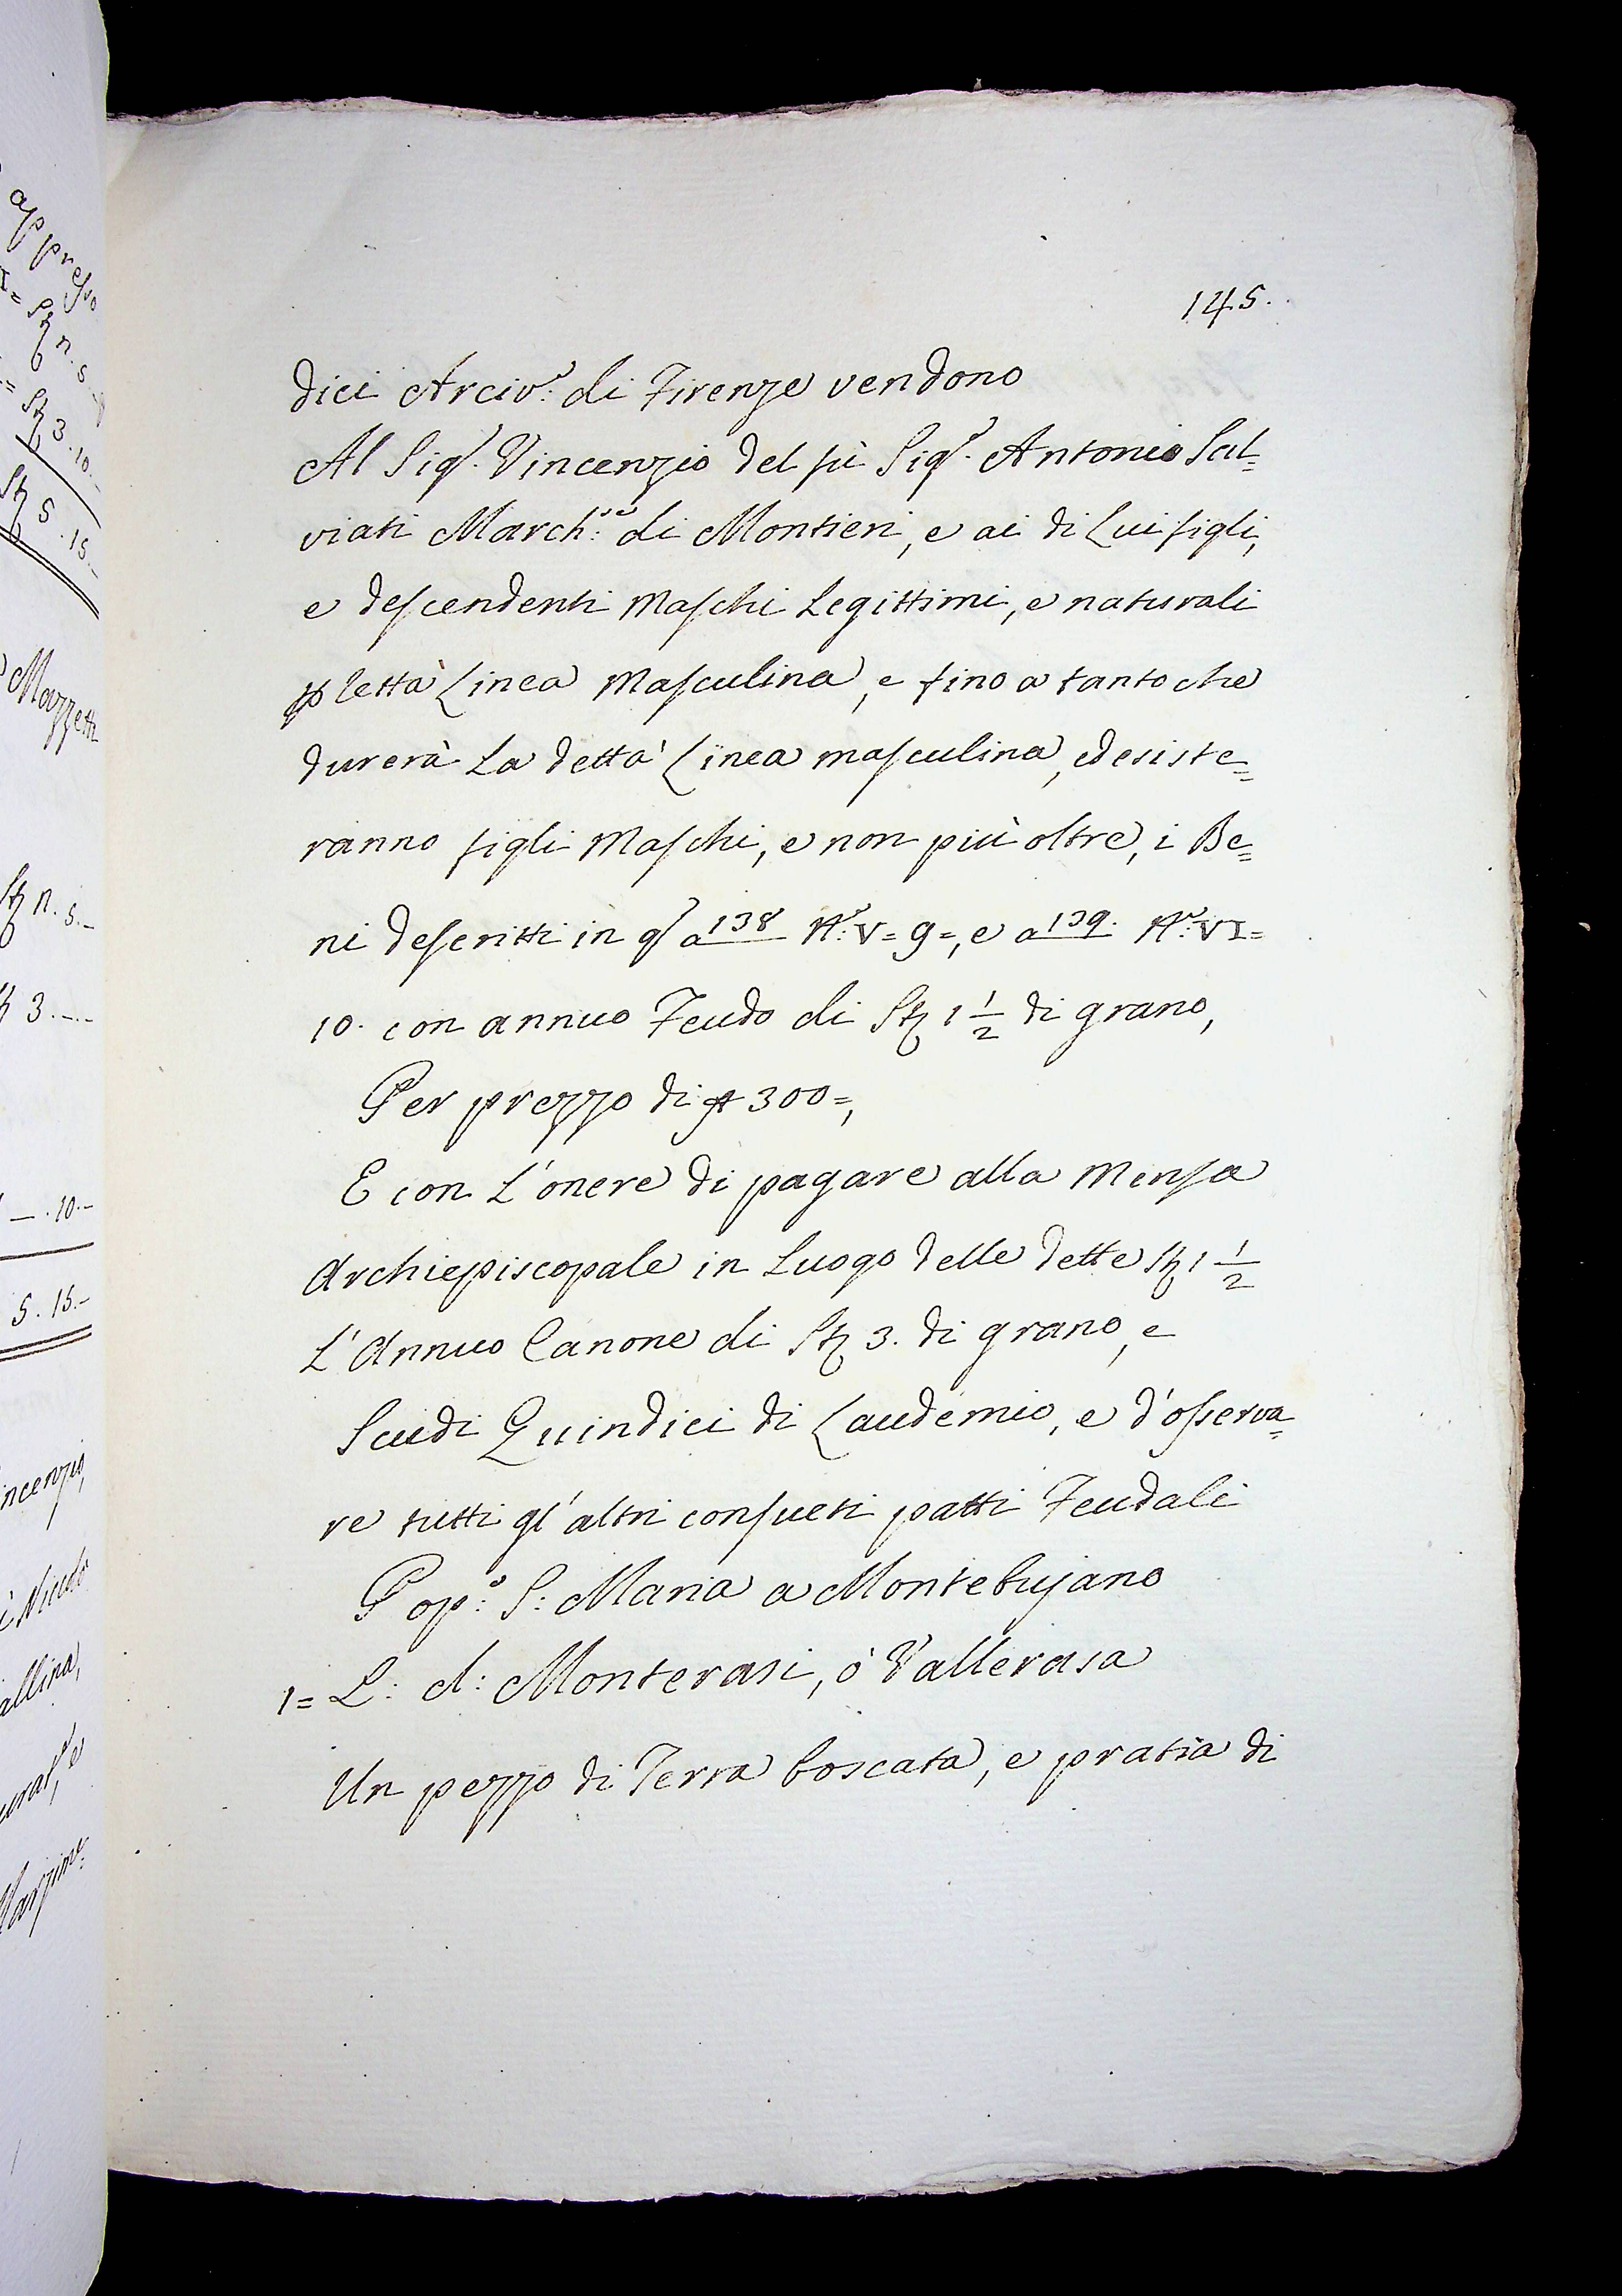 145.
dici Arciv.º di Firenze vendono
Al Sig.r Vincenzio del fù Sig.r Antonio Sal=
viati March.se di Montieri, e ai di Lui figli,
e descendenti Maschi Legittimi, e naturali
p letta Linea Masculina, e fino a tanto che
durerà La detta Linea masculina, ed esiste=
ranno figli Maschi, e non più oltre, i Be=
ni descritti in q.º a 138 N.º V= 9=, e a 139. N.º VI=
10. con annuo Feudo di St 1 1/2 di grano,
Per prezzo di 300=,
E con L'onere di pagare alla Mensa
Archiepiscopale in Luogo delle dette St 1 1/2
L'Annuo Canone di St 3. di grano, e
Scudi Quindici di Laudemio, e d'osserva=
re tutti gl'altri consueti patti Feudali
Pop.º S: Maria a Montebujano
1= L: d: Monterasi, ò Vallerasa
Un pezzo di Terra boscata, e pratìa di
appresso
n. 5.
St 3.10.-
St 5.15.-
Mazzetti
St n. 5.-
3.-.-
-.10.-
5.15.-